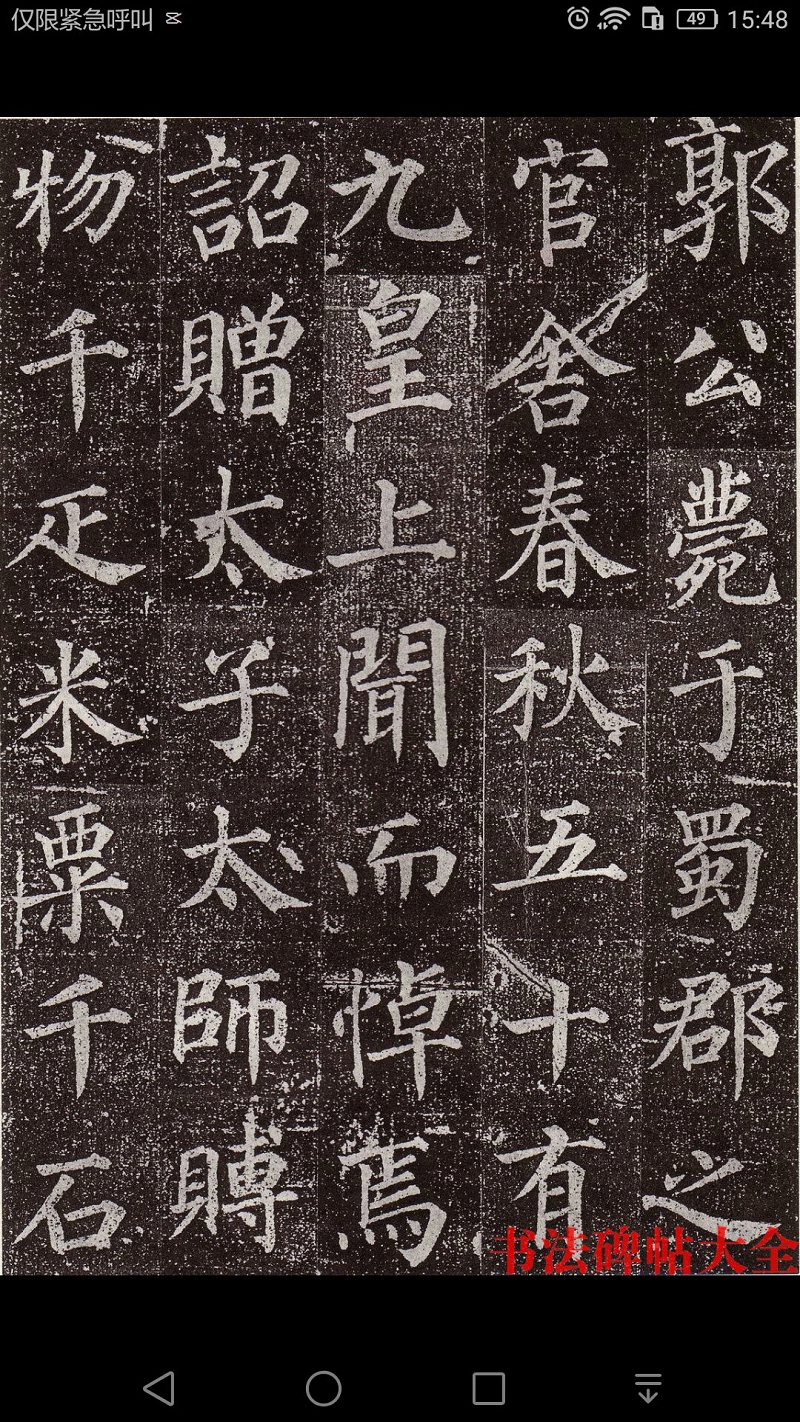 仅限紧急呼叫
49 15:48
郭公薨于蜀郡之
官舍春秋五十有
九皇上聞而悼焉
詔贈太子太師賻
物千疋米粟千石
书法碑帖大全